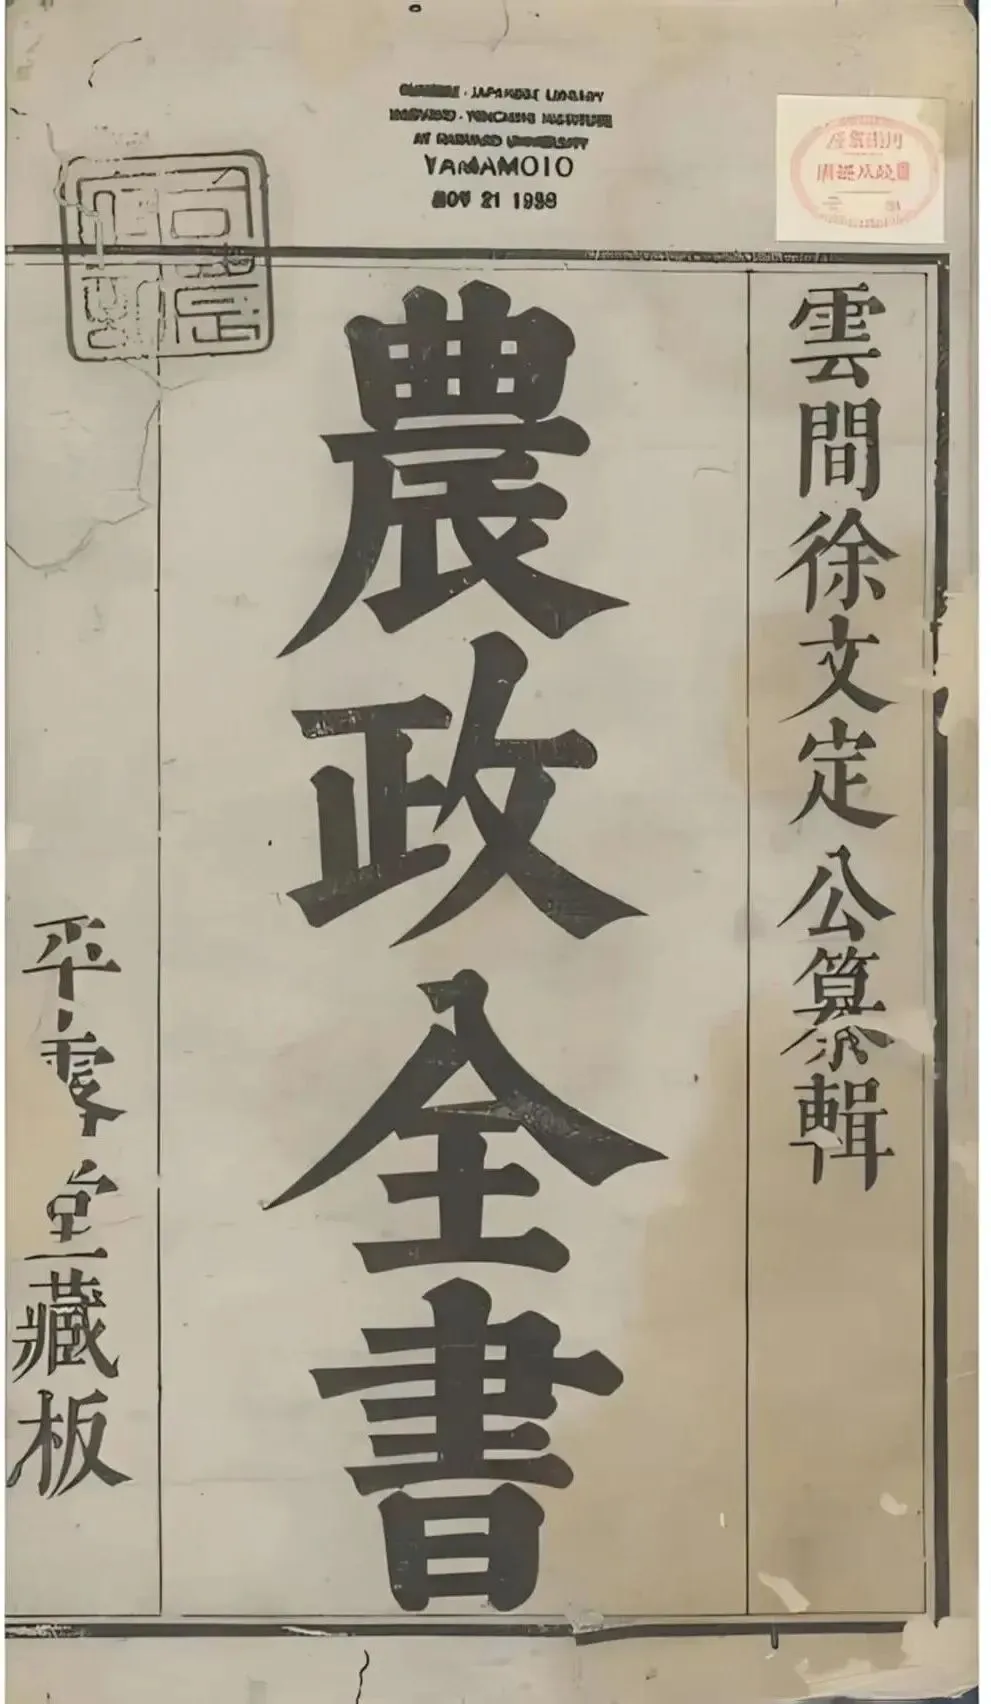 CHINESE - JAPANESE LIBRARY
HARVARD - YENCHING INSTITUTE
AT HARVARD UNIVERSITY
YAMAMOTO
NOV 21 1938
雲間徐文定公纂輯
農政全書
平露堂藏板